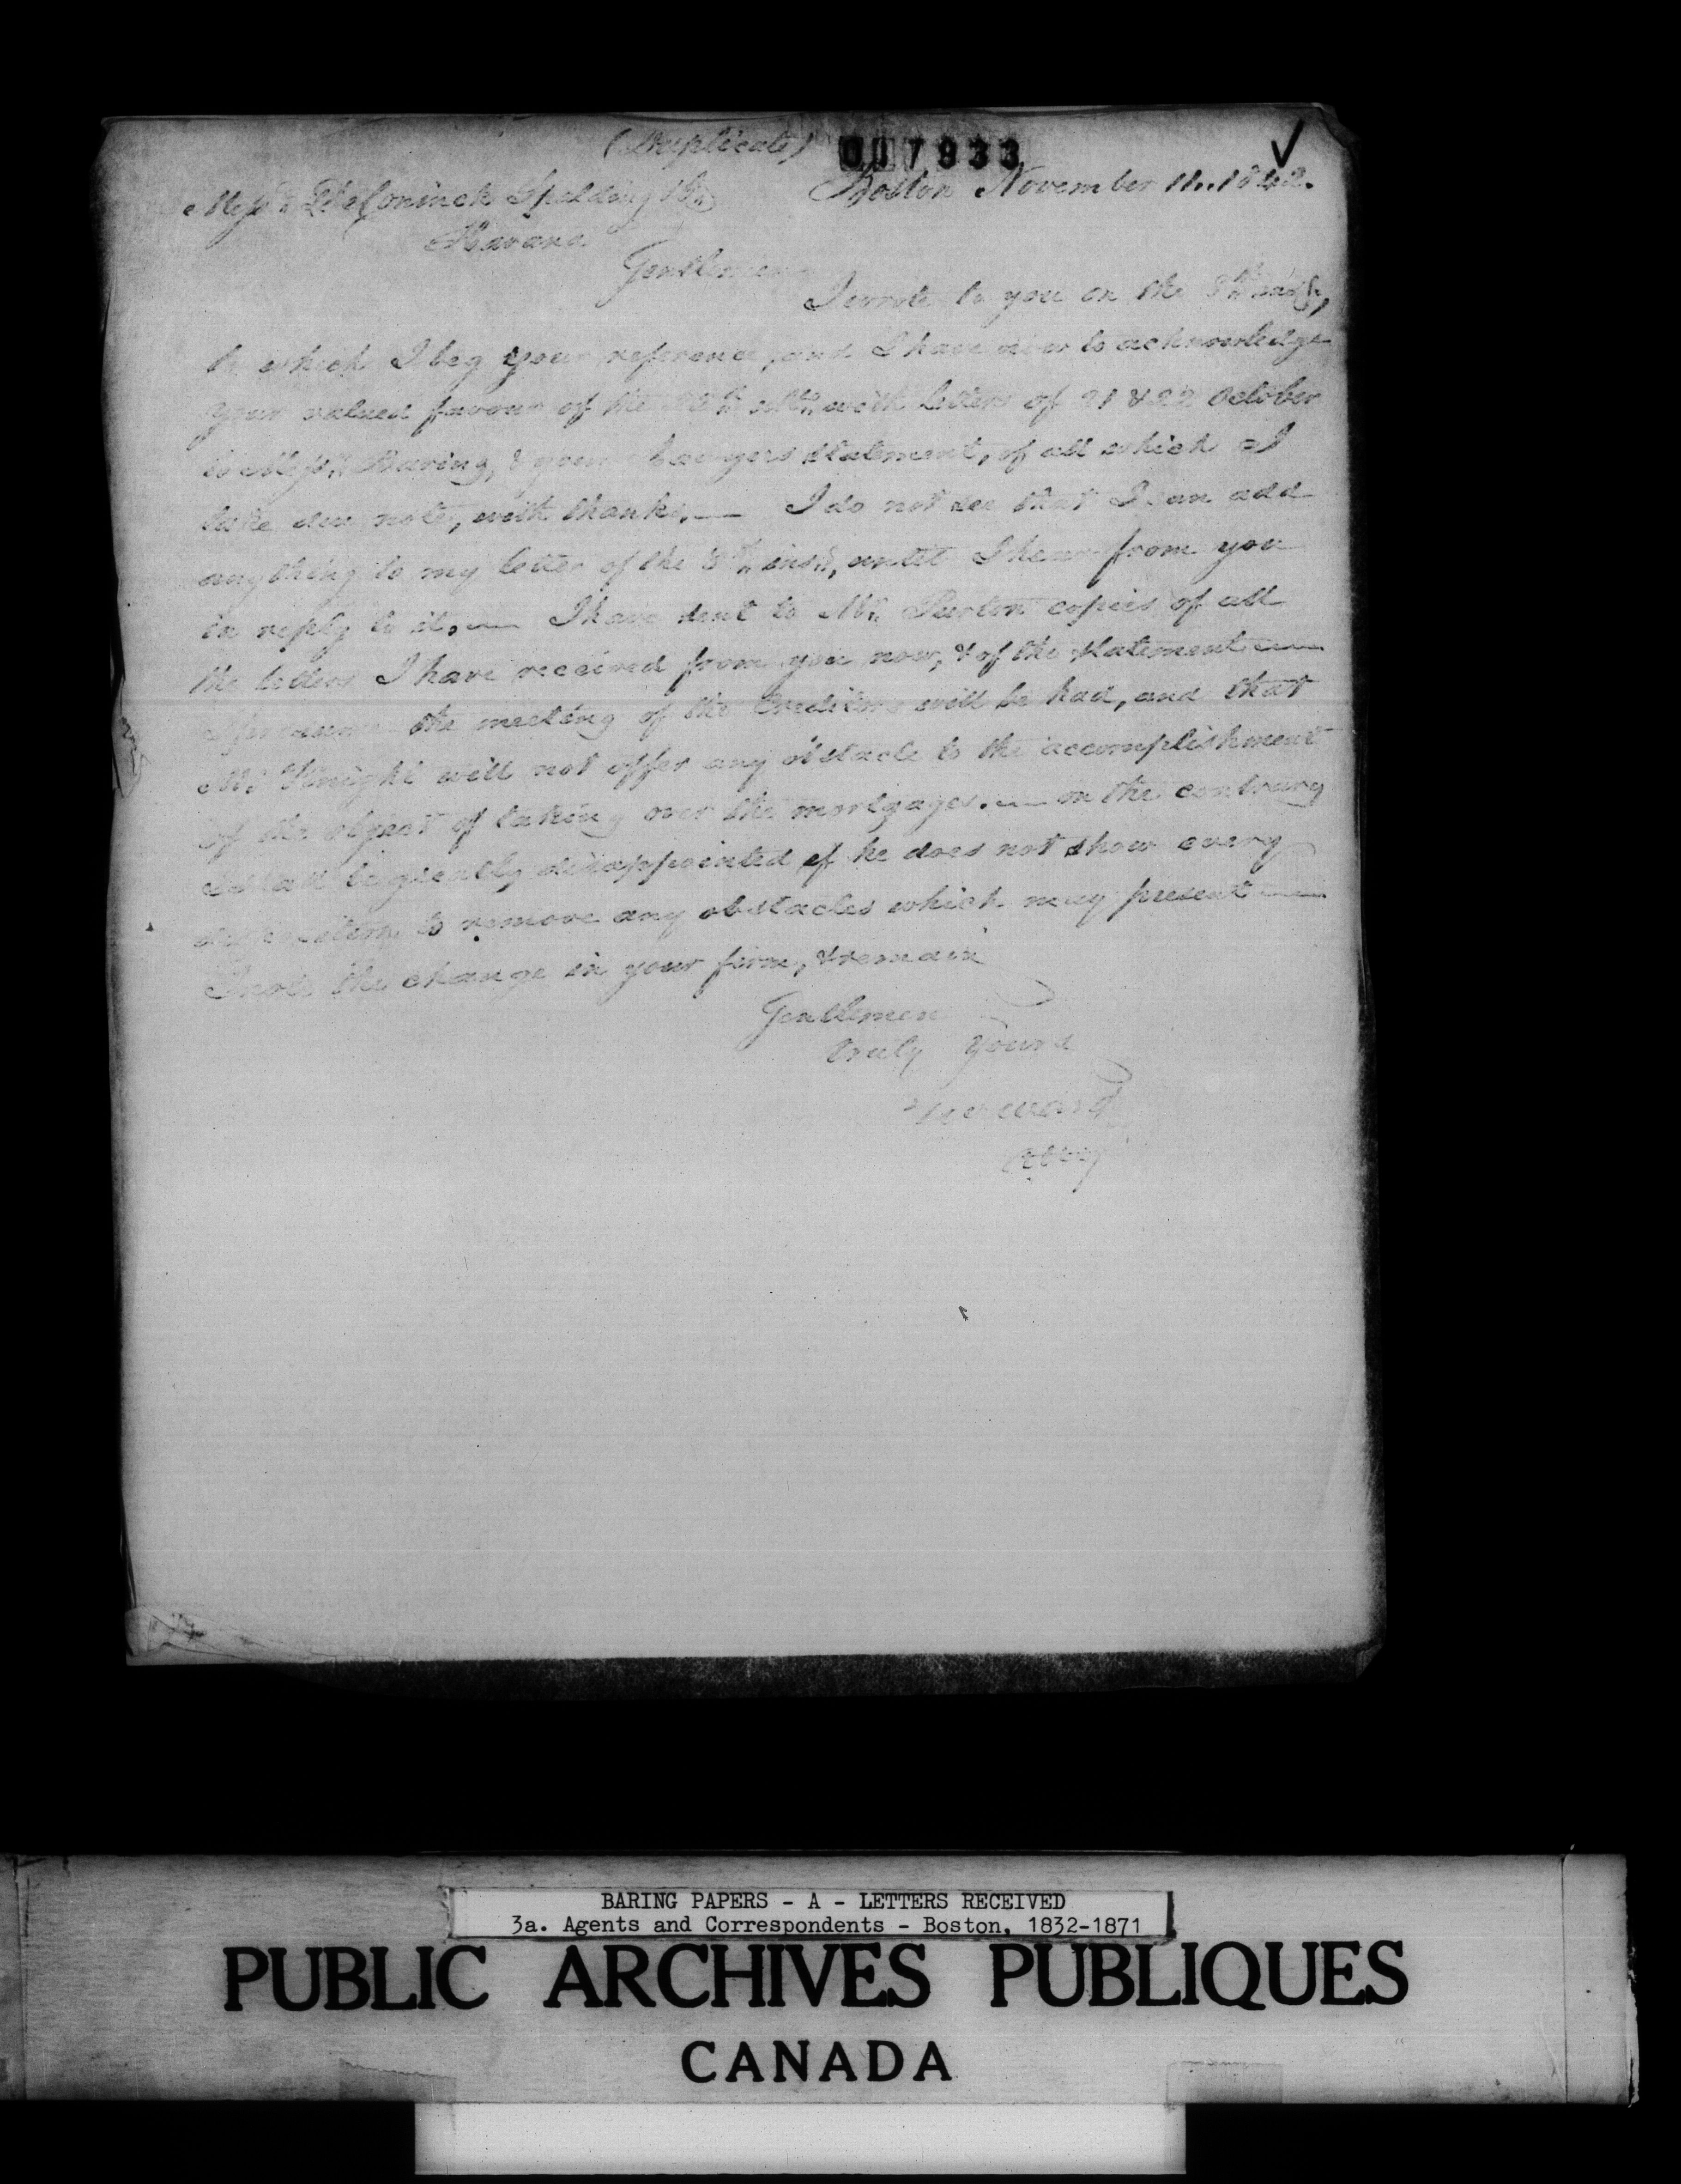 (Duplicate)
017933
Boston November 11.. 1842.
Mess.rs DeConinck Spalding & Co
Havana
Gentlemen
I wrote to you on the 8th inst,
to which I beg your reference, and I have now to acknowledge
your valued favour of the ulto with letters of 21 & 22 October
to Messrs Baring, & your Lawyers statement, of all which I
take due note, with thanks. — I do not see that I can add
anything to my letter of the 8th inst, until I hear from you
in reply to it. — I have sent to Mr. copies of all
the letters I have received from you now, & of the statement —
I presume the meeting of the Creditors will be had, and that
Mr Knight will not offer any obstacle to the accomplishment
of the object of taking over the mortgages. — on the contrary
I shall be greatly disappointed if he does not show every
disposition to remove any obstacles which may present —
I note the change in your firm, & remain
Gentlemen
truly Yours
Ward
BARING PAPERS - A - LETTERS RECEIVED
3a. Agents and Correspondents - Boston, 1832-1871
PUBLIC ARCHIVES PUBLIQUES
CANADA